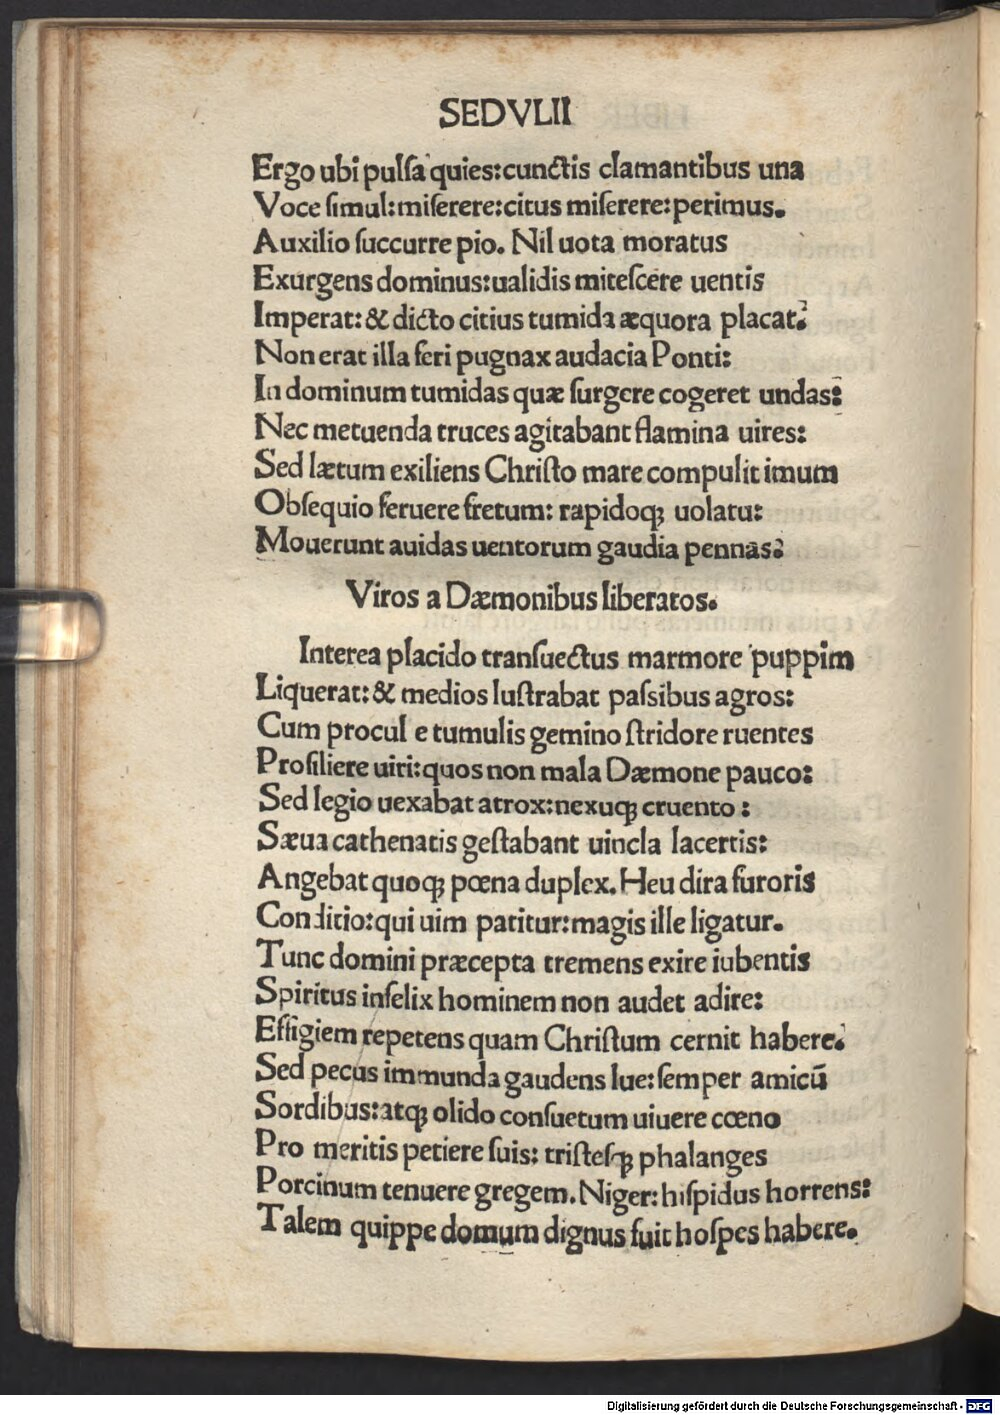 SEDVLII
Ergo ubi pulſa quies: cunctis clamantibus una
Voce ſimul: miſerere: citus miſerere: perimus.
Auxilio ſuccurre pio. Nil uota moratus
Exurgens dominus: ualidis miteſcere uentis
Imperat: & dicto citius tumida æquora placat.
Non erat illa feri pugnax audacia Ponti:
In dominum tumidas quæ ſurgere cogeret undas:
Nec metuenda truces agitabant flamina uires:
Sed lætum exiliens Chriſto mare compulit imum
Obſequio feruere fretum: rapidoq; uolatu:
Mouerunt auidas uentorum gaudia pennas.
Viros a Dæmonibus liberatos.
Interea placido tranſuectus marmore puppim
Liquerat: & medios luſtrabat paſsibus agros:
Cum procul e tumulis gemino ſtridore ruentes
Proſiliere uiri: quos non mala Dæmone pauco:
Sed legio uexabat atrox: nexuq; cruento:
Sæua cathenatis geſtabant uincla lacertis:
Angebat quoq; pœna duplex. Heu dira furoris
Conditio: qui uim patitur: magis ille ligatur.
Tunc domini præcepta tremens exire iubentis
Spiritus infelix hominem non audet adire:
Effigiem repetens quam Chriſtum cernit habere.
Sed pecus immunda gaudens lue: ſemper amicū
Sordibus: atq; olido conſuetum uiuere cœno
Pro meritis petiere ſuis: triſteſq; phalanges
Porcinum tenuere gregem. Niger: hiſpidus horrens:
Talem quippe domum dignus fuit hoſpes habere.
Digitalisierung gefördert durch die Deutsche Forschungsgemeinschaft - DFG